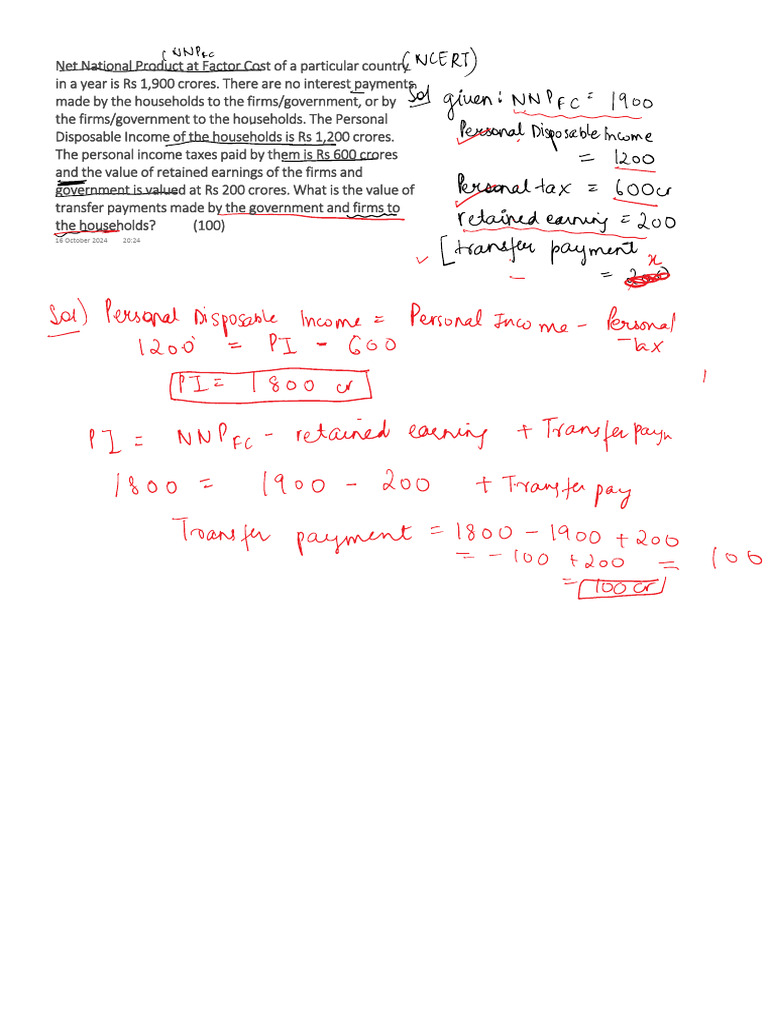 (NNPFC
Net National Product at Factor Cost of a particular country (NCERT)
in a year is Rs 1,900 crores. There are no interest payments
made by the households to the firms/government, or by
the firms/government to the households. The Personal
Disposable Income of the households is Rs 1,200 crores.
The personal income taxes paid by them is Rs 600 crores
and the value of retained earnings of the firms and
government is valued at Rs 200 crores. What is the value of
transfer payments made by the government and firms to
the households? (100)
16 October 2024 20:24
Sol given: NNPFC = 1900
Personal Disposable Income
= 1200
Personal tax = 600cr
retained earning = 200
[transfer payment
= x
Sol) Personal Disposable Income = Personal Income - Personal tax
1200 = PI - 600
PI = 1800 cr
PI = NNPFC - retained earning + Transfer paym
1800 = 1900 - 200 + Transfer pay
Transfer payment = 1800 - 1900 + 200
= -100 + 200 = 100
= 100 cr